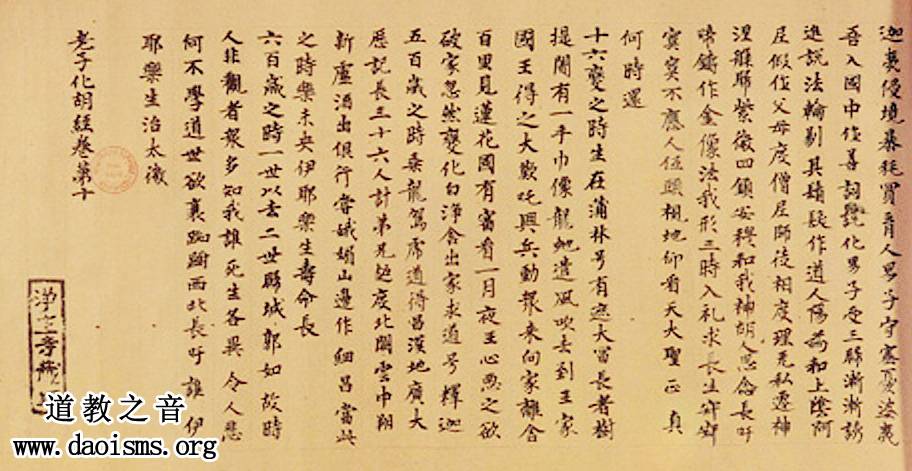 迦夷侵境暴耗買育人男子守塞憂婆夷
吾入國中作善詞說化男子受三歸漸漸誘
進說法輪剔其鬚髮作道人陽為和上陰阿
尼假作父母度僧尼師徒相度理无私遷神
涅槃歸紫微四鎮安穩和我神胡人思念長吁
啼鑄作金像法我形三時入礼求長生寂寂
寞寞不應人伍頭視地仰看天大聖正真
何時還
十六變之時生在蒲林号有遮大富長者樹
提閒有一手巾像龍虵遣風吹去到王家
國王得之大歡吒興兵動衆來向家離舍
百里見蓮花國有審看一月夜王心惡之欲
破家忽然變化白淨舍出家求道号釋迦
五百歲之時乘龍駕虎道得昌漢地廣大
歷記長三十六人計弟兄經度北闕雲中翔
新盧酒出俱行常娥媚山邊作細昌當此
之時樂未央伊耶樂生壽命長
六百歲之時一世以去二世歸城郭如故時
人非觀者衆多知我誰死生各異令人悲
何不學道世欲衰踟蹰西北長吁誰伊
耶樂生治太微
老子化胡經卷第十
淨土寺藏經
道教之音
www.daoisms.org